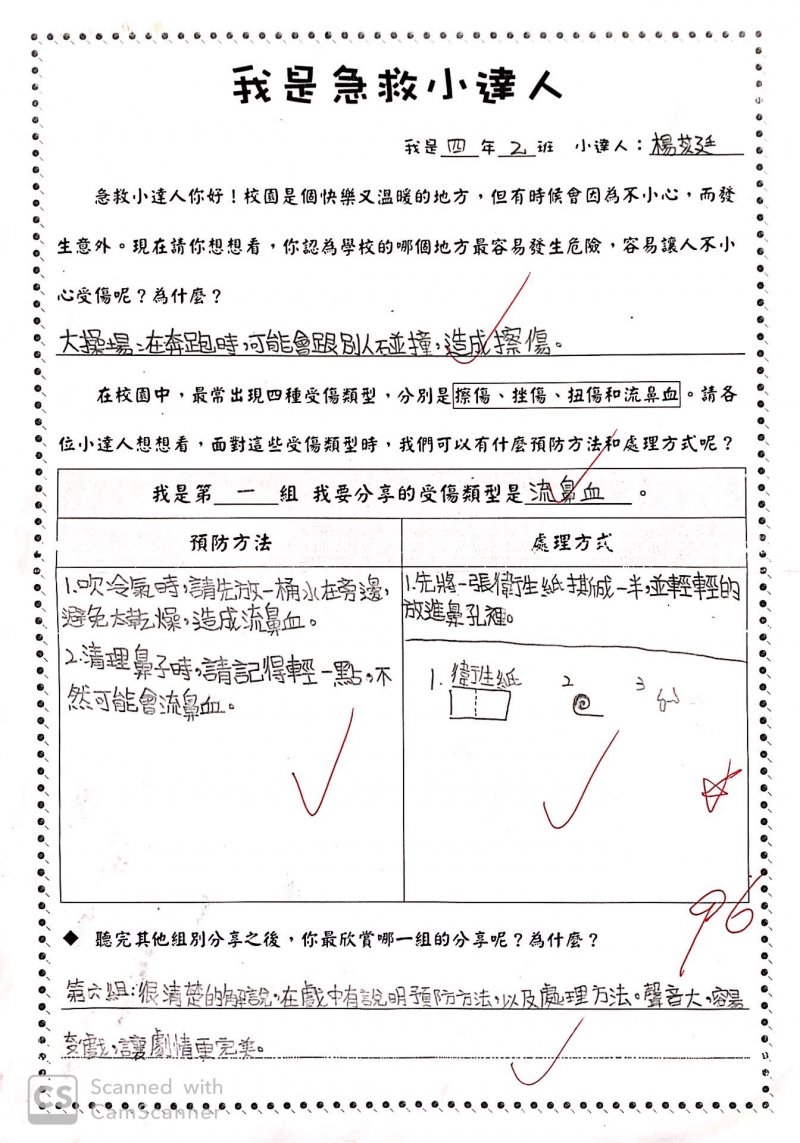 我是急救小達人
我是四年2班 小達人：楊苡廷
急救小達人你好！校園是個快樂又溫暖的地方，但有時候會因為不小心，而發
生意外。現在請你想想看，你認為學校的哪個地方最容易發生危險，容易讓人不小
心受傷呢？為什麼？
大操場：在奔跑時，可能會跟別人碰撞，造成擦傷。
在校園中，最常出現四種受傷類型，分別是擦傷、挫傷、扭傷和流鼻血。請各
位小達人想想看，面對這些受傷類型時，我們可以有什麼預防方法和處理方式呢？
我是第一組 我要分享的受傷類型是流鼻血。
預防方法
1.吹冷氣時，請先放一桶水在旁邊，
避免太乾燥，造成流鼻血。
2.清理鼻子時，請記得輕一點，不
然可能會流鼻血。
處理方式
1.先將一張衛生紙撕成一半，並輕輕的
放進鼻孔裡。
1. 衛生紙 2 3
96
◆ 聽完其他組別分享之後，你最欣賞哪一組的分享呢？為什麼？
第六組：很清楚的解說，在戲中有說明預防方法，以及處理方法。聲音大，容易
戲，讓劇情更完美。
CS Scanned with
CamScanner